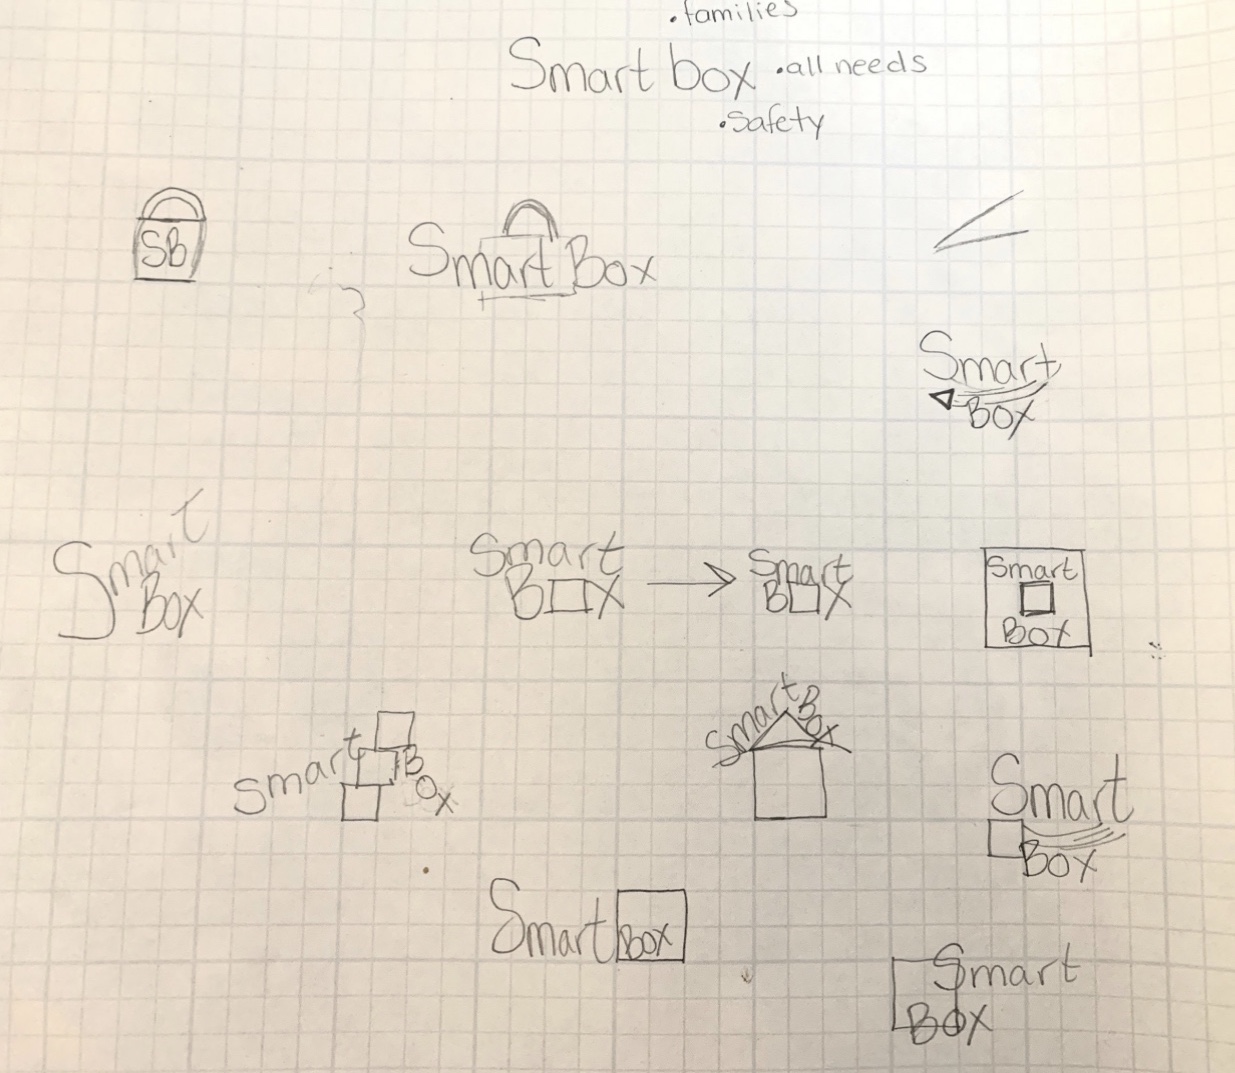 •families
Smart box •all needs
•safety
SB
Smart Box
Smart
Box
Smart
Box
Smart
B□X
Smart
B□X
Smart
Box
Smart Box
Smart Box
Smart
Box
Smart Box
Smart
Box